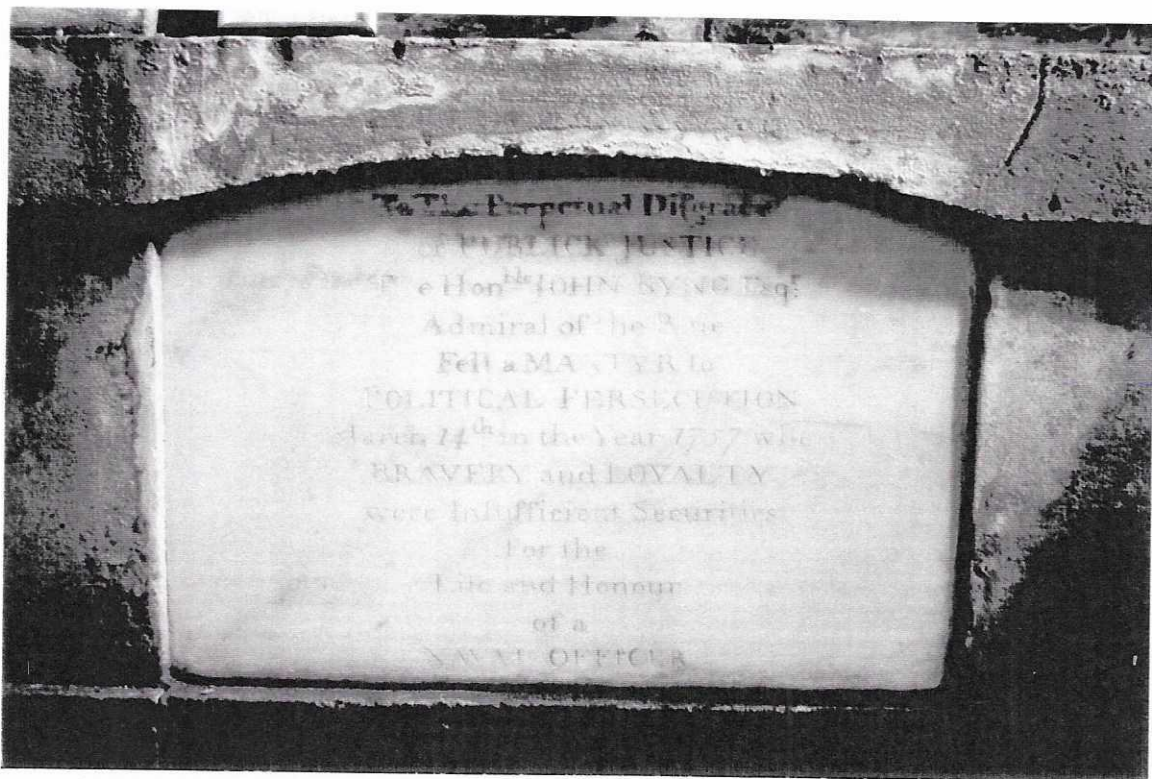 To The Perpetual Diſgrace
of PUBLICK JUSTICE
The Honble JOHN BYNG Esqr
Admiral of the Blue
Fell a MARTYR to
POLITICAL PERSECUTION
March 14th in the Year 1757 when
BRAVERY and LOYALTY
were Inſufficient Securities
For the
Life and Honour
of a
NAVAL OFFICER